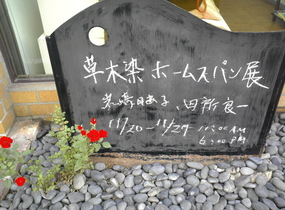 草木染ホームスパン展
子、田新良一
11/20 — 11/29 11:00 AM
6:00 PM